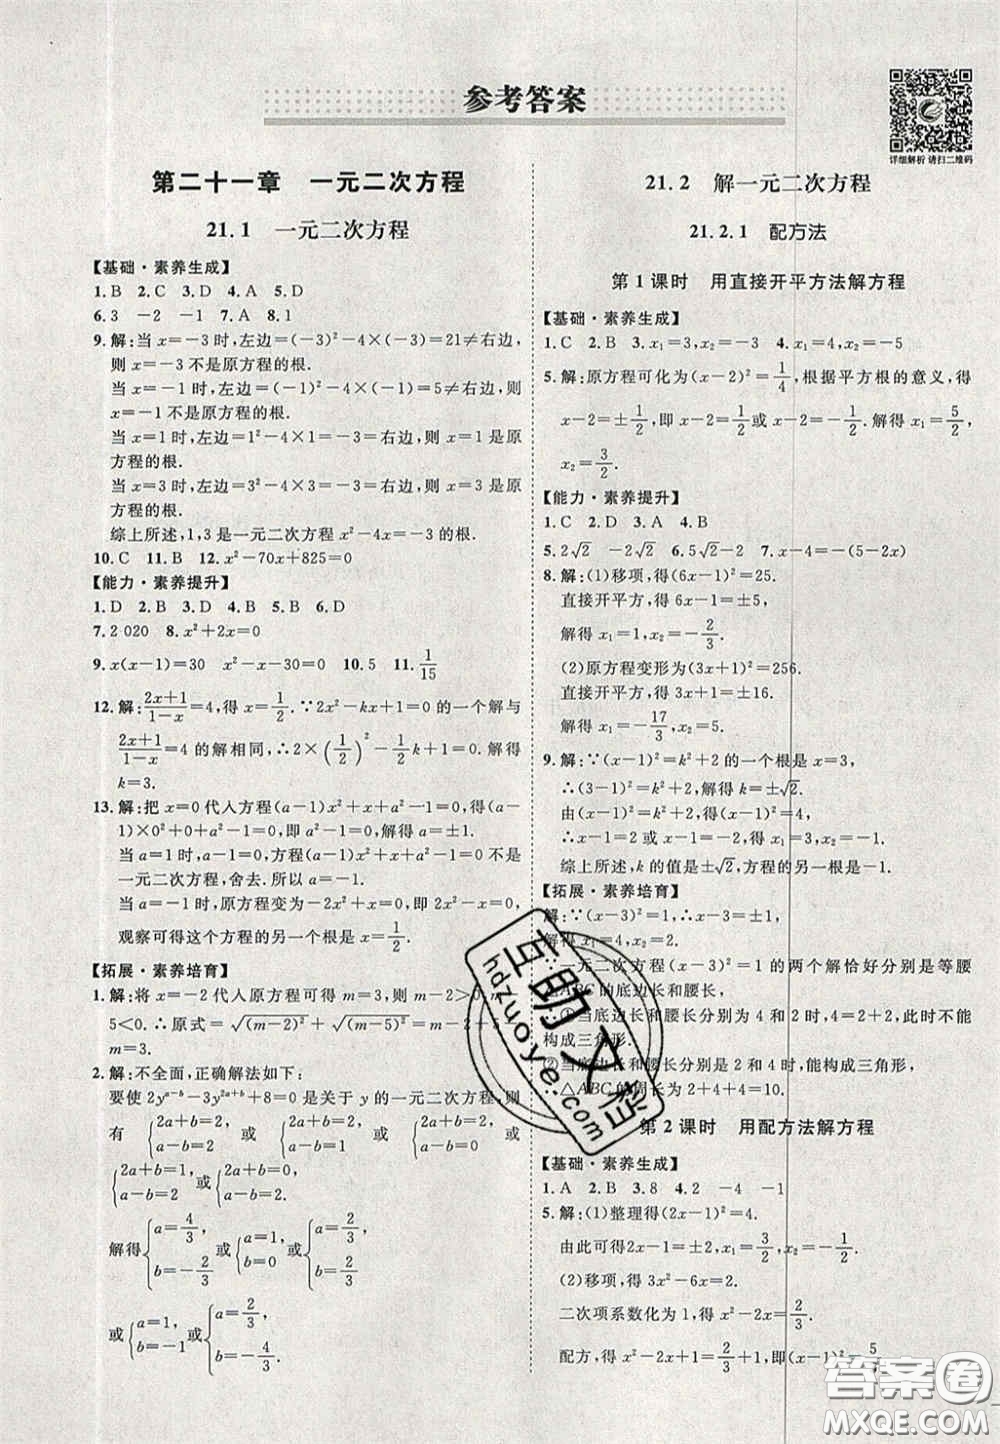 参考答案
详细解析 请扫二维码
第二十一章 一元二次方程
21.1 一元二次方程
【基础·素养生成】
1.B 2.C 3.D 4.A 5.D
6.3 -2 -1 7.A 8.1
9.解:当 x=-3 时,左边=(-3)²-4×(-3)=21≠右边,
则 x=-3 不是原方程的根.
当 x=-1 时,左边=(-1)²-4×(-1)=5≠右边,则
x=-1 不是原方程的根.
当 x=1 时,左边=1²-4×1=-3=右边,则 x=1 是原
方程的根.
当 x=3 时,左边=3²-4×3=-3=右边,则 x=3 是原
方程的根.
综上所述,1,3是一元二次方程 x²-4x=-3 的根.
10.C 11.B 12.x²-70x+825=0
【能力·素养提升】
1.D 2.B 3.D 4.A 5.D 6.B
7.2 020 8.x²+2x=0
9.x(x-1)=30 x²-x-30=0 10.5 11.1/15
12.解:(2x+1)/(1-x)=4,得 x=1/2.∵2x²-kx+1=0 的一个解与
(2x+1)/(1-x)=4 的解相同,∴2×(1/2)²-1/2k+1=0.解得
k=3.
13.解:把 x=0 代入方程(a-1)x²+x+a²-1=0,得(a-
1)×0²+0+a²-1=0,即 a²-1=0.解得 a=±1.
当 a=1 时,a-1=0,方程(a-1)x²+x+a²-1=0 不是
一元二次方程,舍去.所以 a=-1.
当 a=-1 时,原方程变为-2x²+x=0,即 x-2x²=0.
观察可得这个方程的另一个根为 x=1/2.
【拓展·素养培育】
1.解:将 x=-2 代入原方程可得 m=3,则 m-2>0,
5<0.∴原式=√(m-2)²+√(m-5)²=m-2+5-
m=3.
2.解:不全面,正确解法如下:
要使 2yᵃ⁻ᵇ-3y²ᵃ⁺ᵇ+8=0是关于 y 的一元二次方程,则
有{2a+b=2, a-b=2 或{2a+b=2, a-b=1 或{2a+b=1, a-b=2
或{2a+b=2, a-b=0 或{2a+b=0, a-b=2.
解得{a=4/3, b=-2/3 或{a=1, b=0 或{a=2/3, b=2/3
或{a=1, b=-1 或{a=2/3, b=-4/3.
21.2 解一元二次方程
21.2.1 配方法
第 1 课时 用直接开平方法解方程
【基础·素养生成】
1.C 2.B 3.x₁=3,x₂=-3 4.x=-5
5.解:原方程可化为(x-2)²=1/4,根据平方根的意义,得
x-2=±1/2,即 x-2=1/2或 x-2=-1/2.解得 x₁=5/2,
x₂=3/2.
【能力·素养提升】
1.C 2.D 3.D 4.B
5.2√2 -2√2 6.5√2-2 7.x-4=-(5-2x)
8.解:(1)移项,得(6x-1)²=25.
直接开平方,得 6x-1=±5,
解得 x₁=1,x₂=-2/3.
(2)原方程变形为(3x+1)²=256.
直接开平方,得 3x+1=±16.
解得 x₁=-17/3,x₂=5.
9.解:∵(x-1)²=k²+2 的一个根是 x=3,
∴(3-1)²=k²+2,∴k=±√2.
由(x-1)²=k²+2,得(x-1)²=4,
∴x-1=2 或 x-1=-2,∴x=3 或 x=-1.
综上所述,k 的值是±√2,方程的另一根是-1.
【拓展·素养培育】
解:∵(x-3)²=1,∴x-3=±1,
解得 x₁=4,x₂=2.
∵一元二次方程(x-3)²=1 的两个解恰好分别是等腰
△ABC的底边长和腰长,
∴①当底边长和腰长分别为 4 和 2 时,4=2+2,此时不能
构成三角形;
②当底边长和腰长分别是 2 和 4 时,能构成三角形,
∴△ABC的周长为 2+4+4=10.
第 2 课时 用配方法解方程
【基础·素养生成】
1.A 2.B 3.8 4.2 -4 -1
5.解:(1)整理得(2x-1)²=4.
由此可得 2x-1=±2,x₁=3/2,x₂=-1/2.
(2)移项,得 3x²-6x=2.
二次项系数化为 1,得 x²-2x=2/3.
配方,得 x²-2x+1=2/3+1,即(x-1)²=5
互助文档
hdzuoye.com
答案圈
MXQE.COM